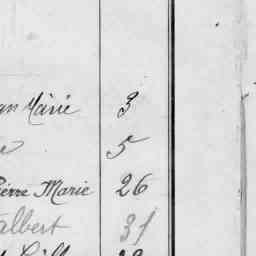 an Marie 3
e 5
ierre Marie 26
albert 31